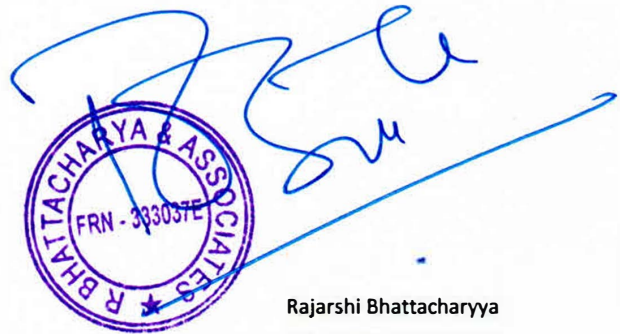 R BHATTACHARYA & ASSOCIATES ★
FRN - 333037E
Rajarshi Bhattacharyya